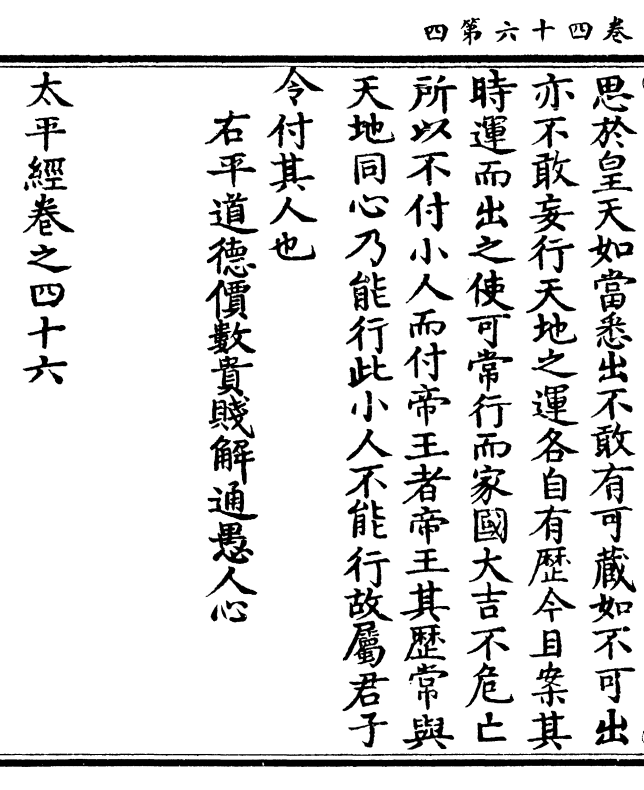 卷四十六第四
思於皇天如當悉出不敢有可藏如不可出
亦不敢妄行天地之運各自有歷今且案其
時運而出之使可常行而家國大吉不危亡
所以不付小人而付帝王者帝王其歷常與
天地同心乃能行此小人不能行故屬君子
令付其人也
右平道德價數貴賤解通愚人心
太平經卷之四十六